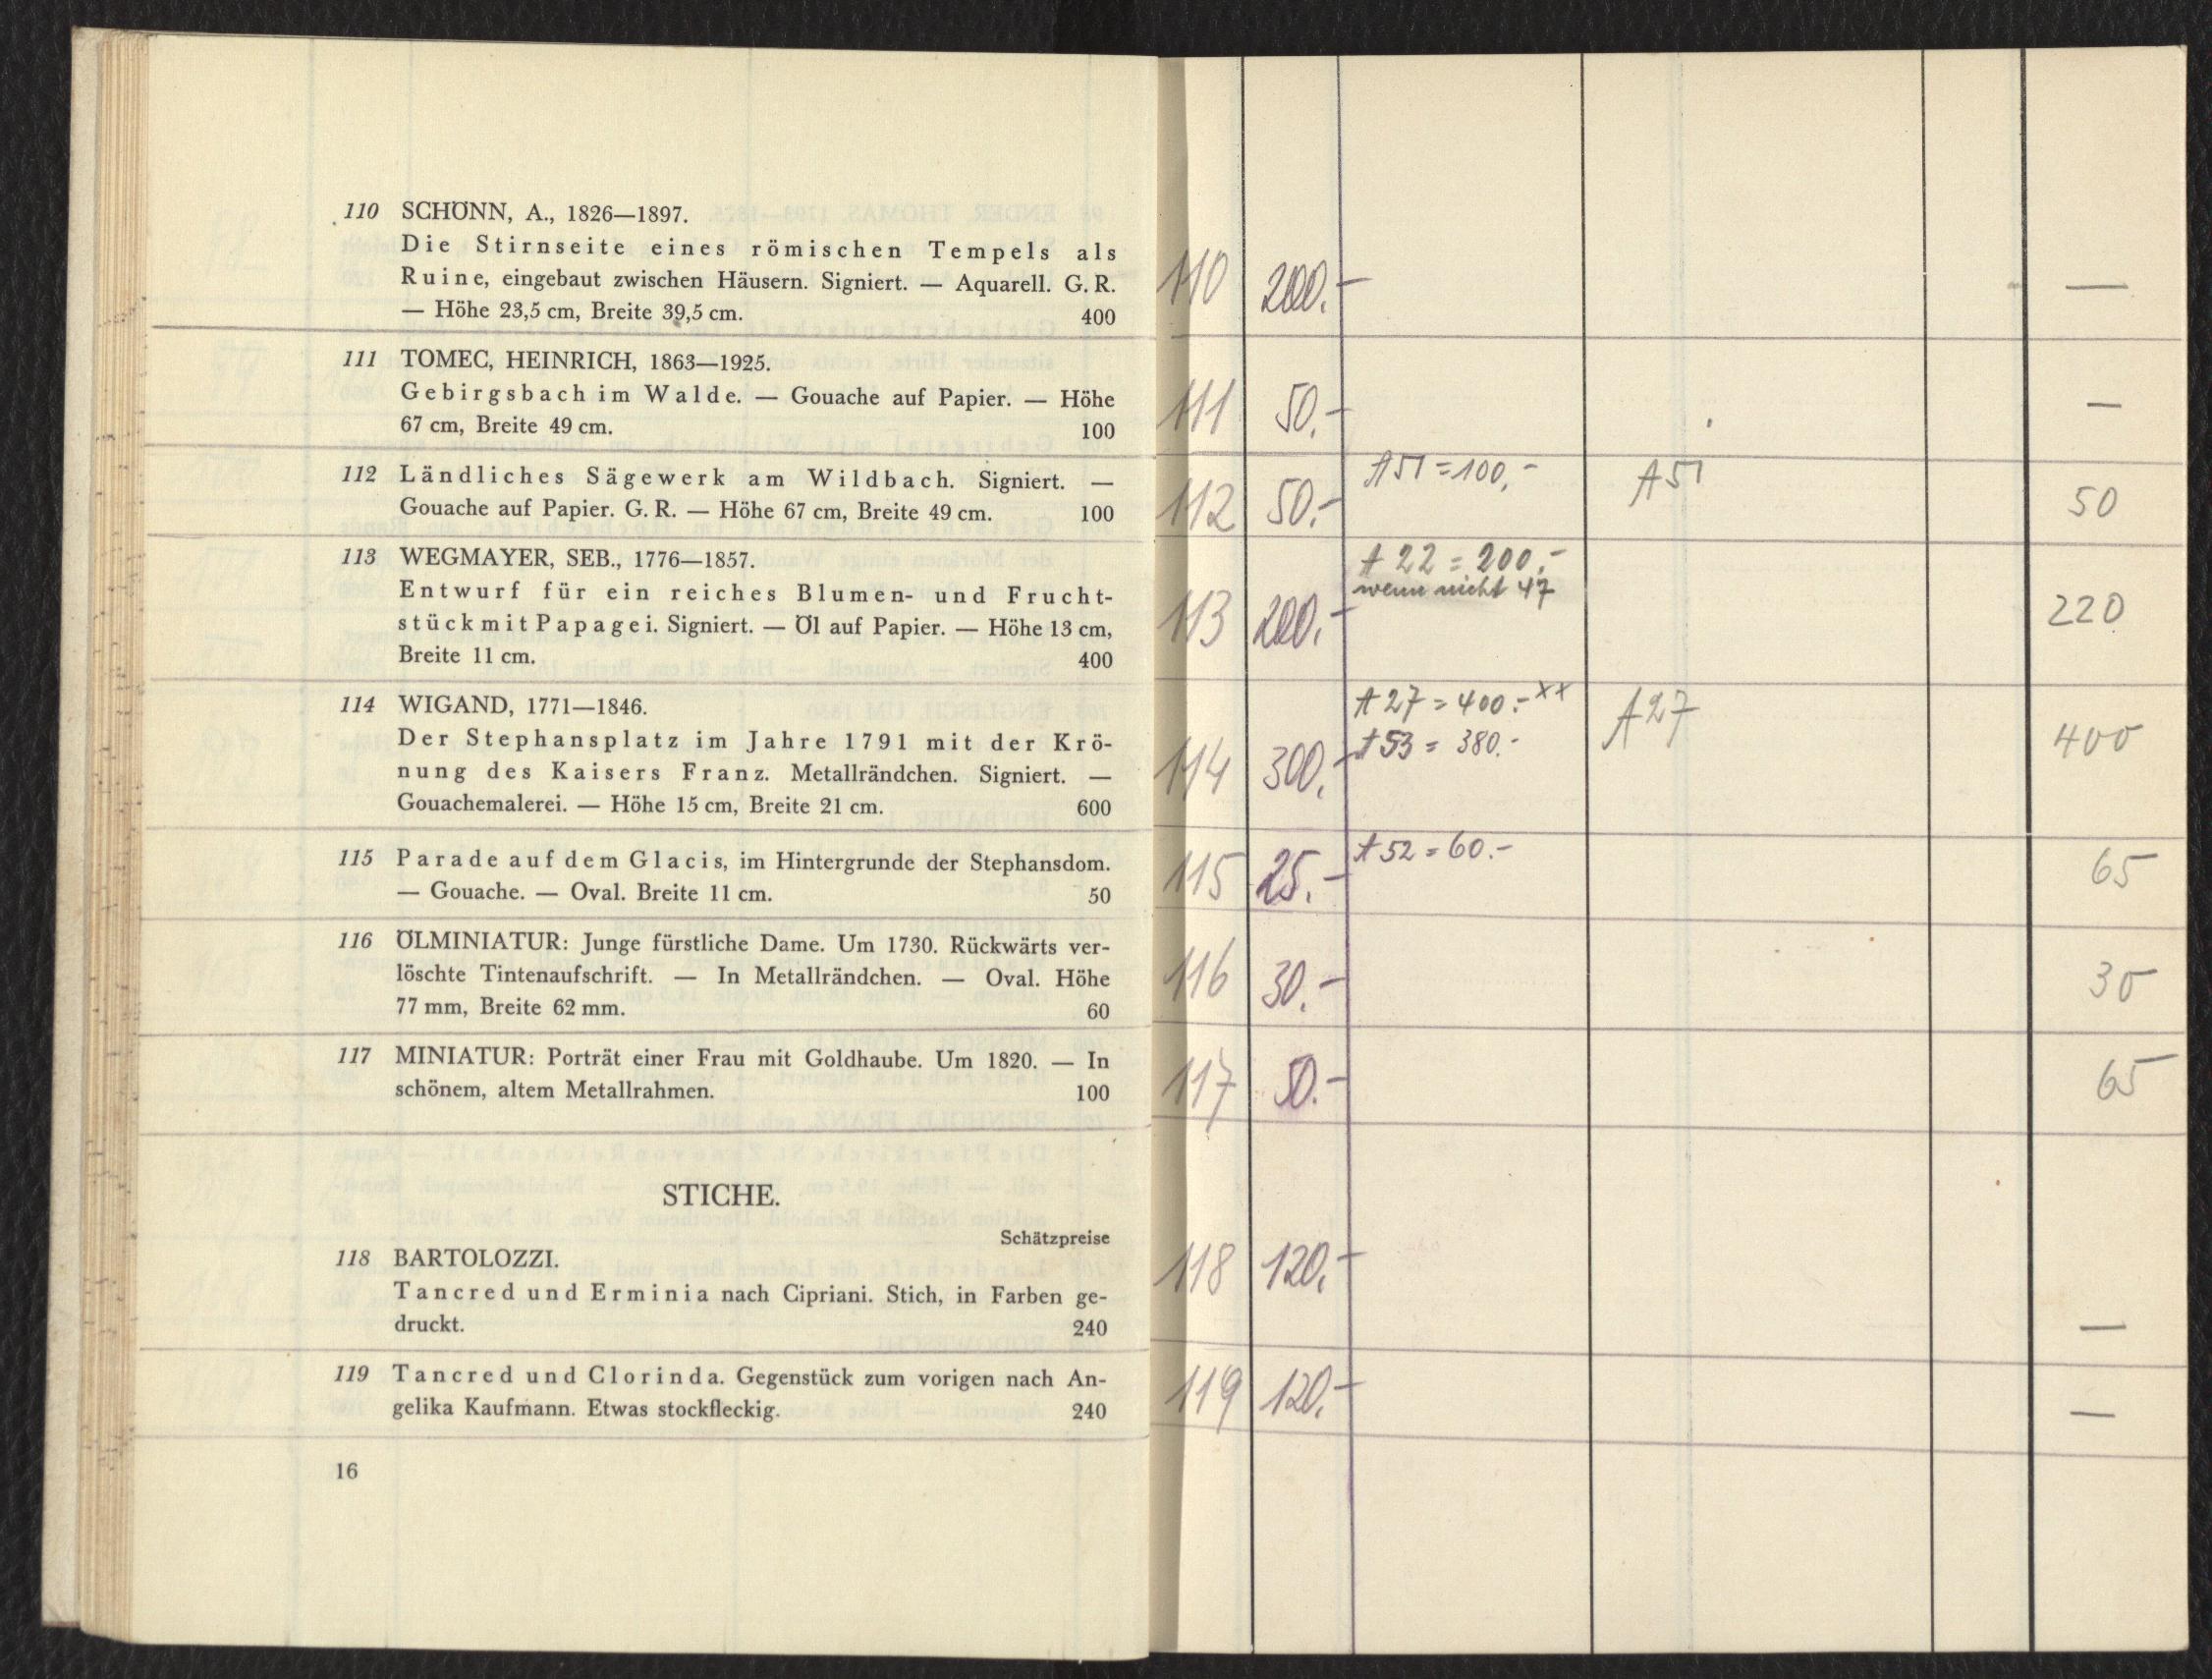 110 SCHÖNN, A., 1826—1897.
Die Stirnseite eines römischen Tempels als
Ruine, eingebaut zwischen Häusern. Signiert. — Aquarell. G. R.
— Höhe 23,5 cm, Breite 39,5 cm. 400
111 TOMEC, HEINRICH, 1863—1925.
Gebirgsbach im Walde. — Gouache auf Papier. — Höhe
67 cm, Breite 49 cm. 100
112 Ländliches Sägewerk am Wildbach. Signiert. —
Gouache auf Papier. G. R. — Höhe 67 cm, Breite 49 cm. 100
113 WEGMAYER, SEB., 1776—1857.
Entwurf für ein reiches Blumen- und Frucht-
stück mit Papagei. Signiert. — Öl auf Papier. — Höhe 13 cm,
Breite 11 cm. 400
114 WIGAND, 1771—1846.
Der Stephansplatz im Jahre 1791 mit der Krö-
nung des Kaisers Franz. Metallrändchen. Signiert. —
Gouachemalerei. — Höhe 15 cm, Breite 21 cm. 600
115 Parade auf dem Glacis, im Hintergrunde der Stephansdom.
— Gouache. — Oval. Breite 11 cm. 50
116 ÖLMINIATUR: Junge fürstliche Dame. Um 1730. Rückwärts ver-
löschte Tintenaufschrift. — In Metallrändchen. — Oval. Höhe
77 mm, Breite 62 mm. 60
117 MINIATUR: Porträt einer Frau mit Goldhaube. Um 1820. — In
schönem, altem Metallrahmen. 100
STICHE.
Schätzpreise
118 BARTOLOZZI.
Tancred und Erminia nach Cipriani. Stich, in Farben ge-
druckt. 240
119 Tancred und Clorinda. Gegenstück zum vorigen nach An-
gelika Kaufmann. Etwas stockfleckig. 240
16
110 200.- —
111 50.- —
A 51 = 100,- A 51
112 50.- 50
A 22 = 200.-
wenn nicht 47
113 200.- 220
A 27 = 400.- xx A 27
A 53 = 380.-
114 300.- 400
A 52 = 60.-
115 25.- 65
116 30.- 30
117 50.- 65
118 120.- —
119 120.- —